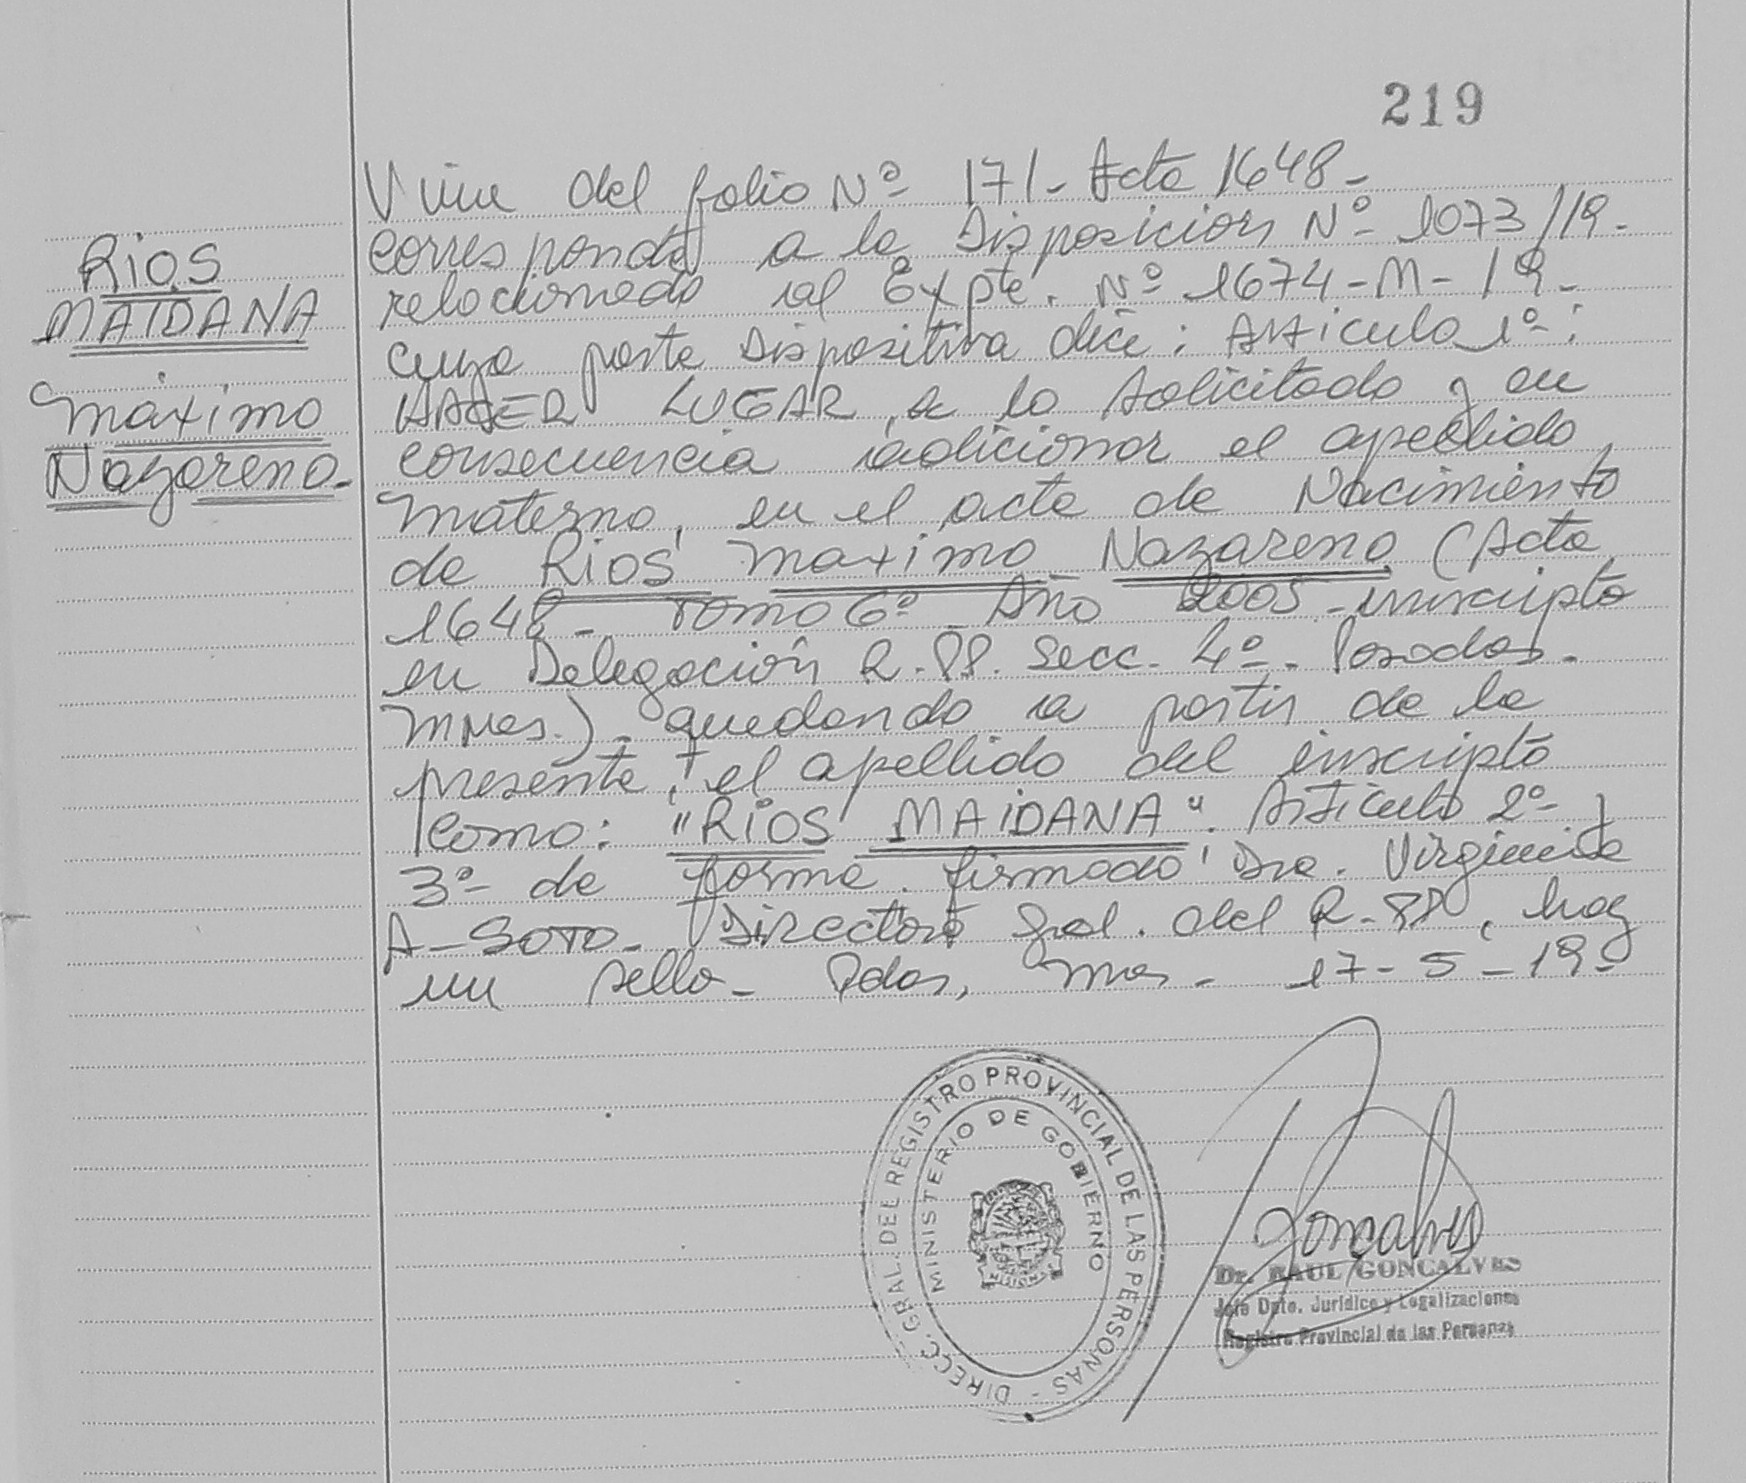 219
RIOS
MAIDANA
Máximo
Nazareno.-
Viene del folio Nº 171- Acta 1648-
corresponde a la Disposición Nº 1073/19-
relacionado al Expte. Nº 1674-M-19-
cuya parte Dispositiva dice: Artículo 1º:
HACER LUGAR a lo solicitado y en
consecuencia adicionar el apellido
materno, en el acta de Nacimiento
de RIOS Maximo Nazareno (Acta
1648- Tomo 6º- Año 2005- inscripto
en Delegación R.PP. Secc. 4º- Posadas-
Mnes.)- quedando a partir de la
presente, el apellido del inscripto
como: "RIOS MAIDANA". Artículo 2º- y
3º- de forma. firmado Dra. Virginia
A- SOTO- Directora Gral. del R-PP, hay
un sello- Pdas, Mnes- 17-5-19-
DIRECC. GRAL. DEL REGISTRO PROVINCIAL DE LAS PERSONAS -
MINISTERIO DE GOBIERNO
MISIONES
Goncalves
Dr. RAUL GONCALVES
Jefe Dpto. Jurídico y Legalizaciones
Registro Provincial de las Personas